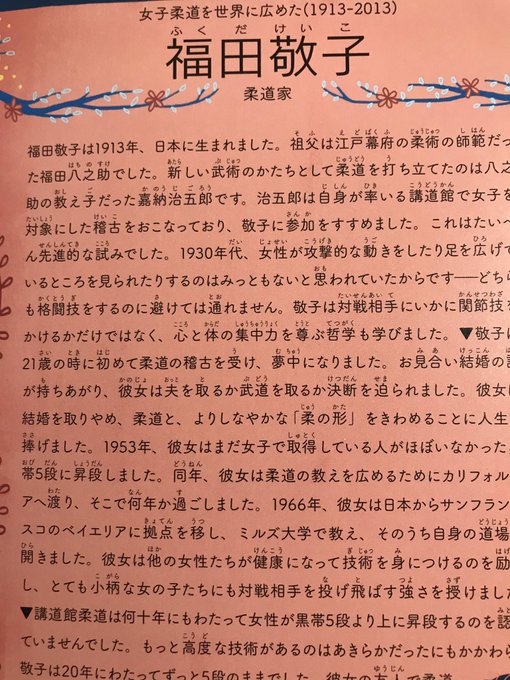 女子柔道を世界に広めた(1913-2013)
ふくだけいこ
福田敬子
柔道家
福田敬子は1913年、日本に生まれました。祖父は江戸幕府の柔術の師範だっ
た福田八之助でした。新しい武術のかたちとして柔道を打ち立てたのは八之
助の教え子だった嘉納治五郎です。治五郎は自身が率いる講道館で女子を
対象にした稽古をおこなっており、敬子に参加をすすめました。これはたいへ
ん先進的な試みでした。1930年代、女性が攻撃的な動きをしたり足を広げて
いるところを見られたりするのはみっともないと思われていたからです──どちら
も格闘技をするのに避けては通れません。敬子は対戦相手にいかに関節技を
かけるかだけではなく、心と体の集中力を尊ぶ哲学も学びました。▼敬子は
21歳の時に初めて柔道の稽古を受け、夢中になりました。お見合い結婚の話
が持ちあがり、彼女は夫を取るか武道を取るか決断を迫られました。彼女は
結婚を取りやめ、柔道と、よりしなやかな「柔の形」をきわめることに人生を
捧げました。1953年、彼女はまだ女子で取得している人がほぼいなかった
帯5段に昇段しました。同年、彼女は柔道の教えを広めるためにカリフォル
アへ渡り、そこで何年か過ごしました。1966年、彼女は日本からサンフラン
スコのベイエリアに拠点を移し、ミルズ大学で教え、そのうち自身の道場
開きました。彼女は他の女性たちが健康になって技術を身につけるのを励
し、とても小柄な女の子にも対戦相手を投げ飛ばす強さを授けました
▼講道館柔道は何十年にもわたって女性が黒帯5段より上に昇段するのを認
ていませんでした。もっと高度な技術があるのはあきらかだったにもかかわら
敬子は20年にわたってずっと5段のままでした。彼女の友人で柔道